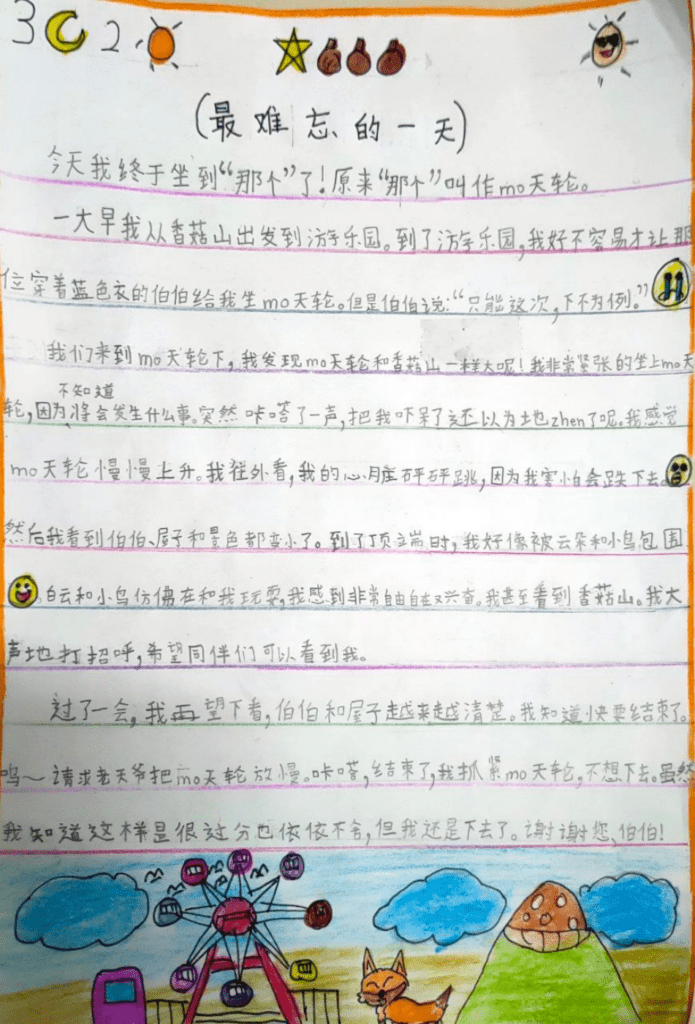 3 2
(最难忘的一天)
今天我终于坐到“那个”了！原来“那个”叫作mo天轮。
一大早我从香菇山出发到游乐园。到了游乐园，我好不容易才让那
位穿着蓝色衣的伯伯给我坐mo天轮。但是伯伯说：“只能这次，下不为例。”
我们来到mo天轮下，我发现mo天轮和香菇山一样大呢！我非常紧张的坐上mo天
不知道
轮，因为将会发生什么事。突然咔嗒了一声，把我吓呆了还以为地zhen了呢。我感觉
mo天轮慢慢上升。我往外看，我的心脏砰砰跳，因为我害怕会跌下去。
然后我看到伯伯、屋子和景色都变小了。到了顶端时，我好像被云朵和小鸟包围
白云和小鸟仿佛在和我玩耍，我感到非常自由自在又兴奋。我甚至看到香菇山。我大
声地打招呼，希望同伴们可以看到我。
过了一会，我再望下看，伯伯和屋子越来越清楚。我知道快要结束了。
呜～请求老天爷把mo天轮放慢。咔嗒，结束了，我抓紧mo天轮，不想下去。虽然
我知道这样是很过分也依依不舍，但我还是下去了。谢谢您，伯伯！